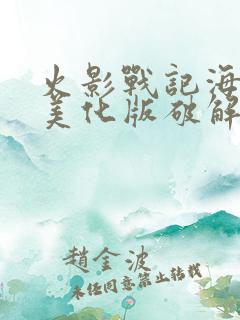 火影戰記海
美化版破解
趙金波
未经同意禁止转载